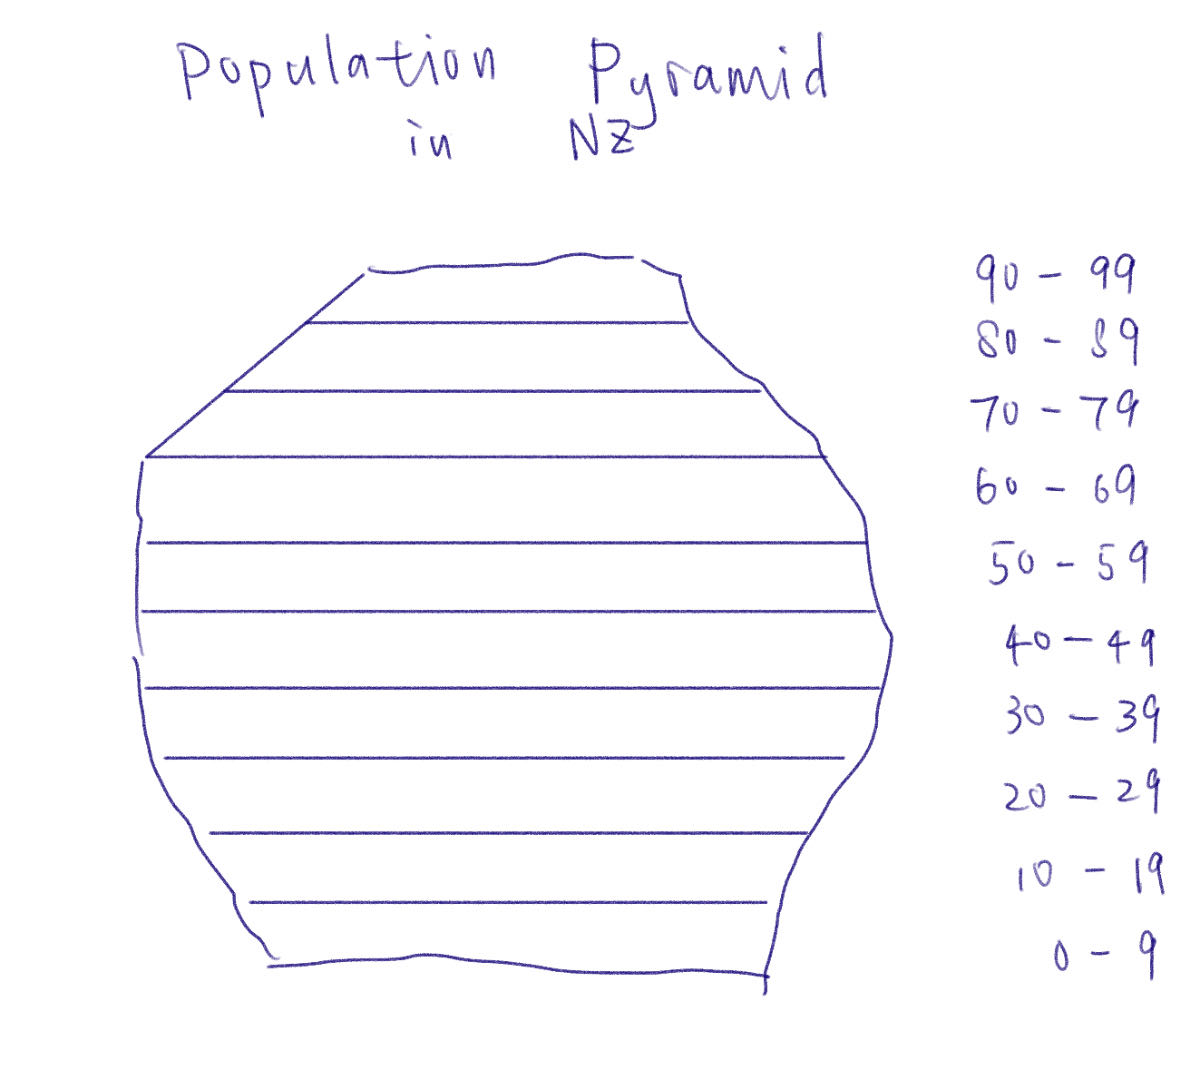 Population Pyramid
in NZ
90 - 99
80 - 89
70 - 79
60 - 69
50 - 59
40 - 49
30 - 39
20 - 29
10 - 19
0 - 9